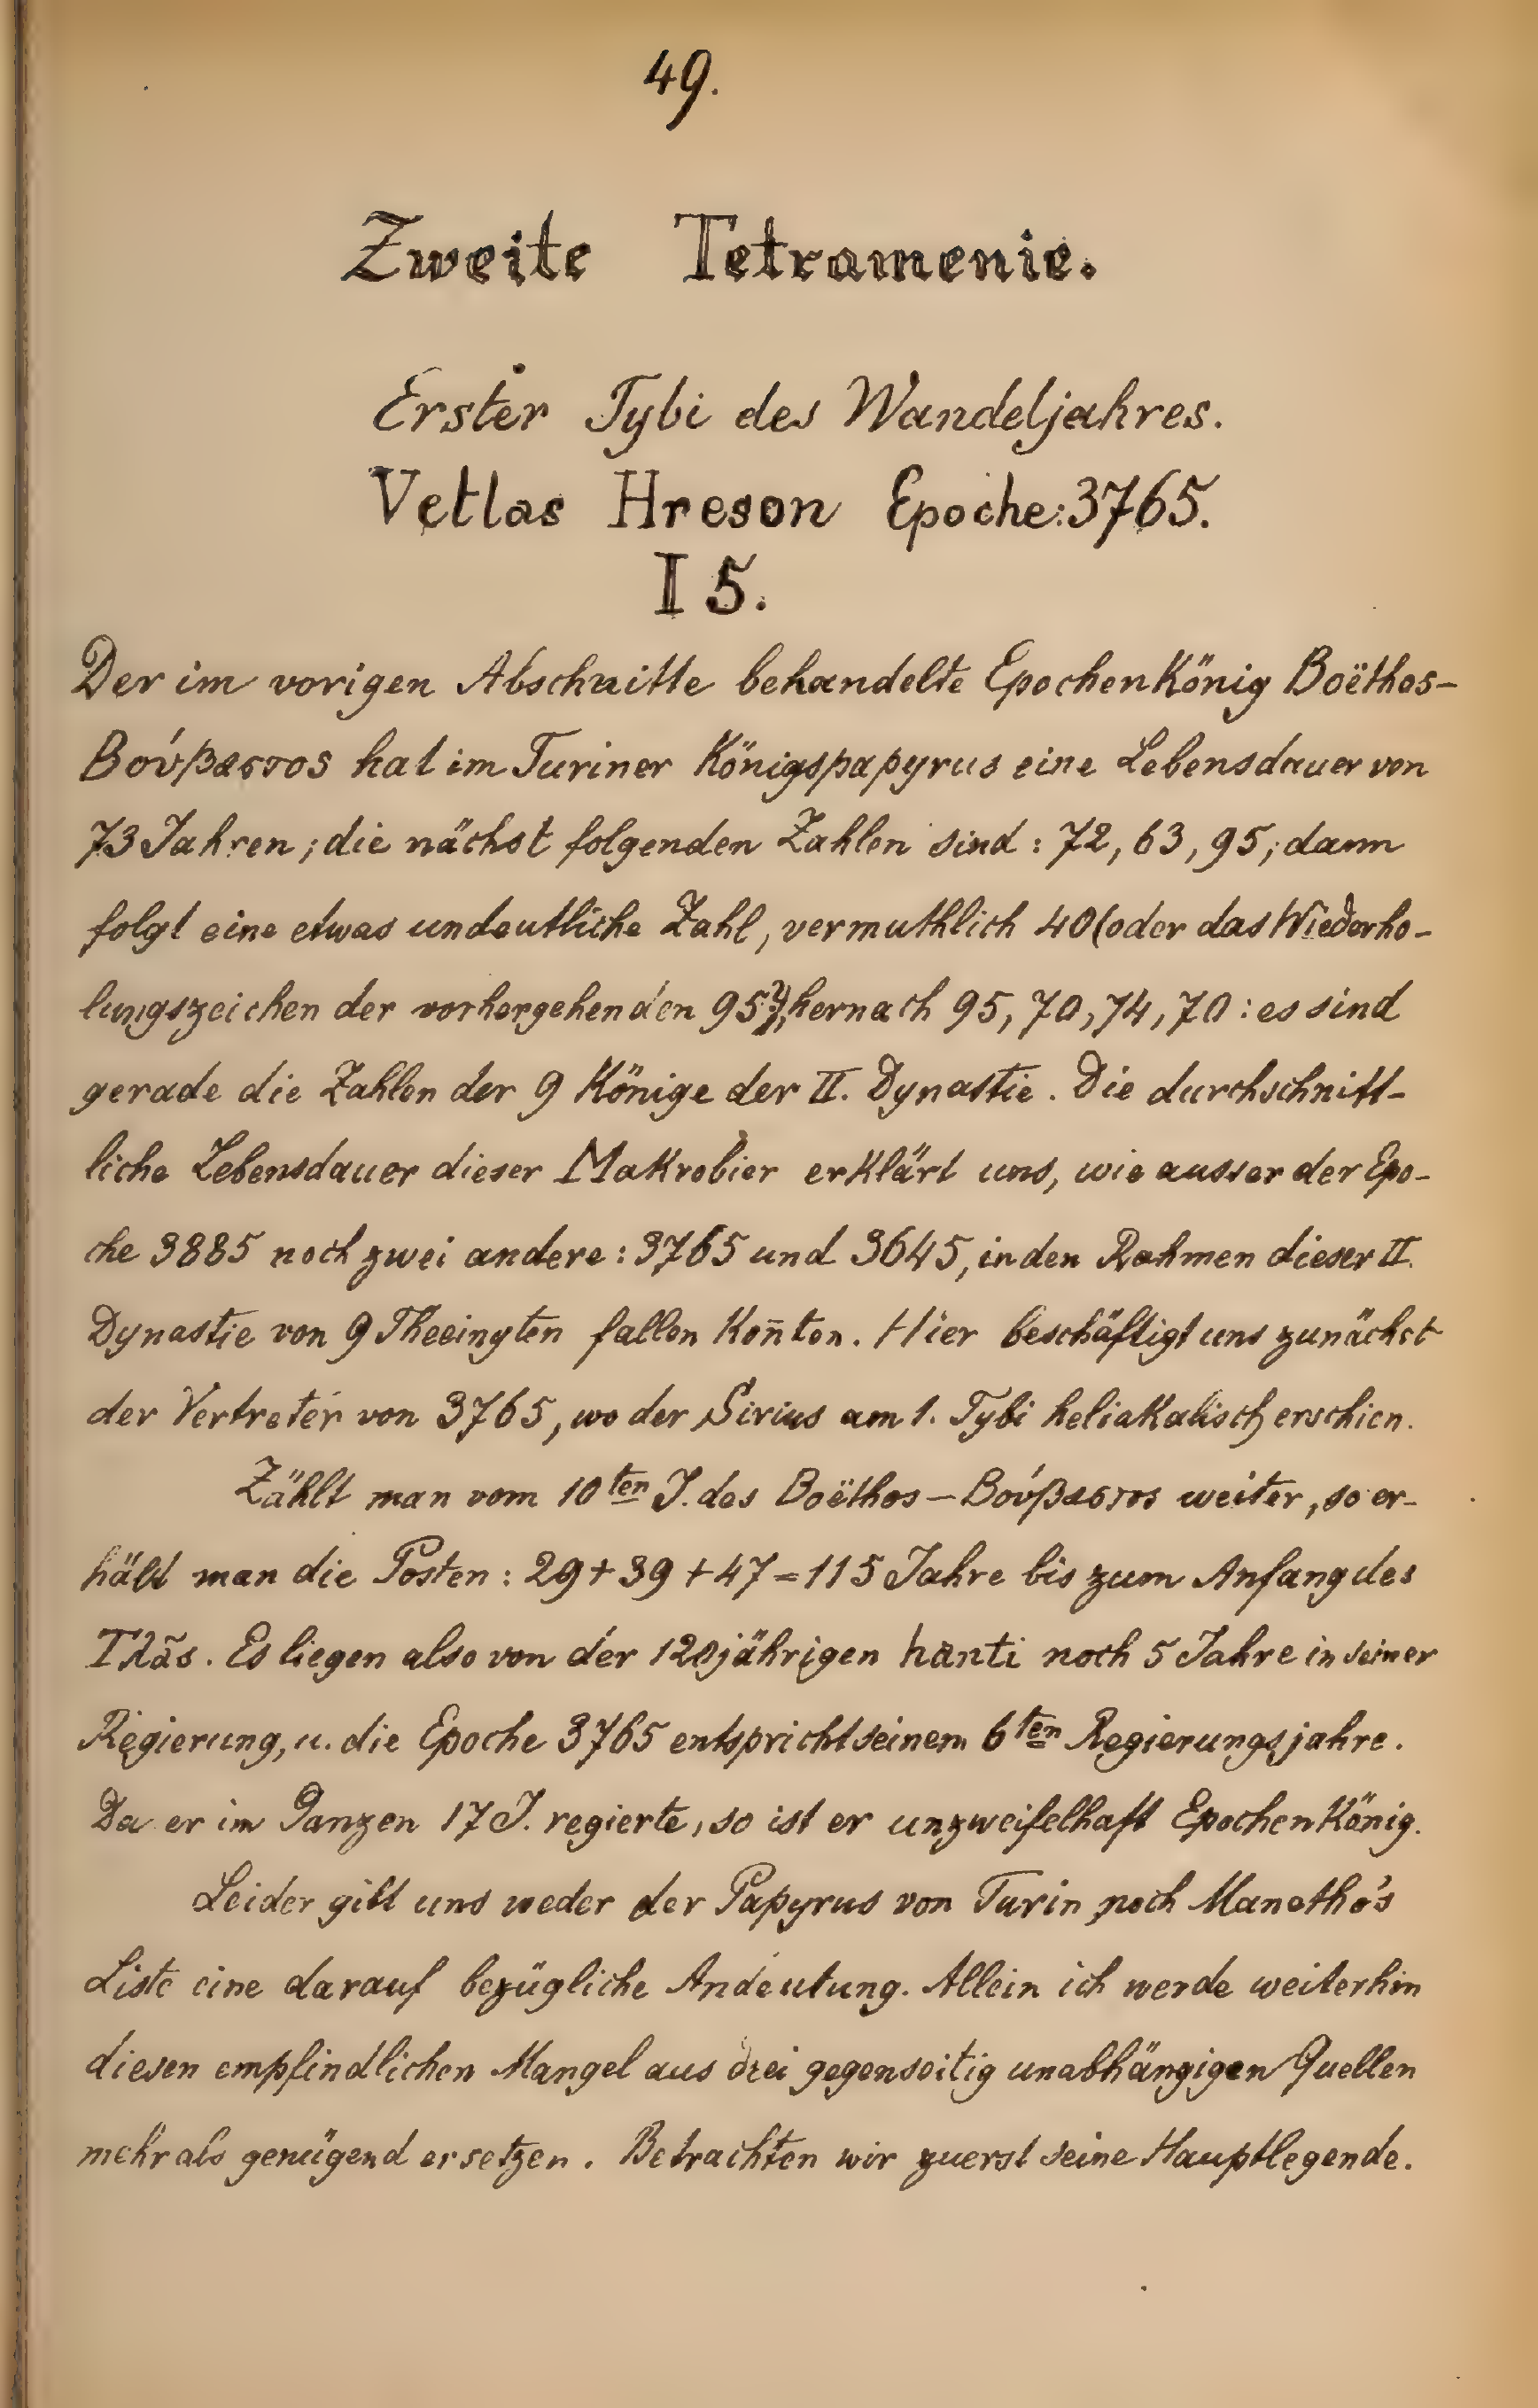 49.
Zweite Tetramenie.
Erster Tybi des Wandeljahres.
Vetlas Hreson Epoche: 3765.
I 5.
Der im vorigen Abschnitte behandelte Epochenkönig Boëthos-
Βούβαστος hat im Turiner Königspapyrus eine Lebensdauer von
73 Jahren; die nächst folgenden Zahlen sind: 72, 63, 95; dann
folgt eine etwas undeutliche Zahl, vermuthlich 40 (oder das Wiederho-
lungszeichen der vorhergehenden 95?), hernach 95, 70, 74, 70: es sind
gerade die Zahlen der 9 Könige der II. Dynastie. Die durchschnitt-
liche Lebensdauer dieser Makrobier erklärt uns, wie ausser der Epo-
che 3885 noch zwei andere: 3765 und 3645, in den Rahmen dieser II.
Dynastie von 9 Theeinyten fallen kon̄ten. Hier beschäftigt uns zunächst
der Vertreter von 3765, wo der Sirius am 1. Tybi heliakalisch erschien.
Zählt man vom 10ten J. des Boëthos – Βούβαστος weiter, so er-
hält man die Posten: 29 + 39 + 47 = 115 Jahre bis zum Anfang des
Τλᾶς. Es liegen also von der 120jährigen hanti noch 5 Jahre in seiner
Regierung, u. die Epoche 3765 entspricht seinem 6ten Regierungsjahre.
Da er im Ganzen 17 J. regierte, so ist er unzweifelhaft Epochenkönig.
Leider gibt uns weder der Papyrus von Turin noch Manetho's
Liste eine darauf bezügliche Andeutung. Allein ich werde weiterhin
diesen empfindlichen Mangel aus drei gegenseitig unabhängigen Quellen
mehr als genügend ersetzen. Betrachten wir zuerst seine Hauptlegende.